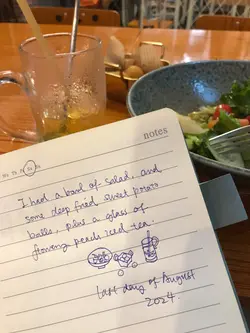 notes
I had a bowl of salad, and
some deep fried sweet potato
balls, plus a glass of
peach iced tea.
last day of August
2024